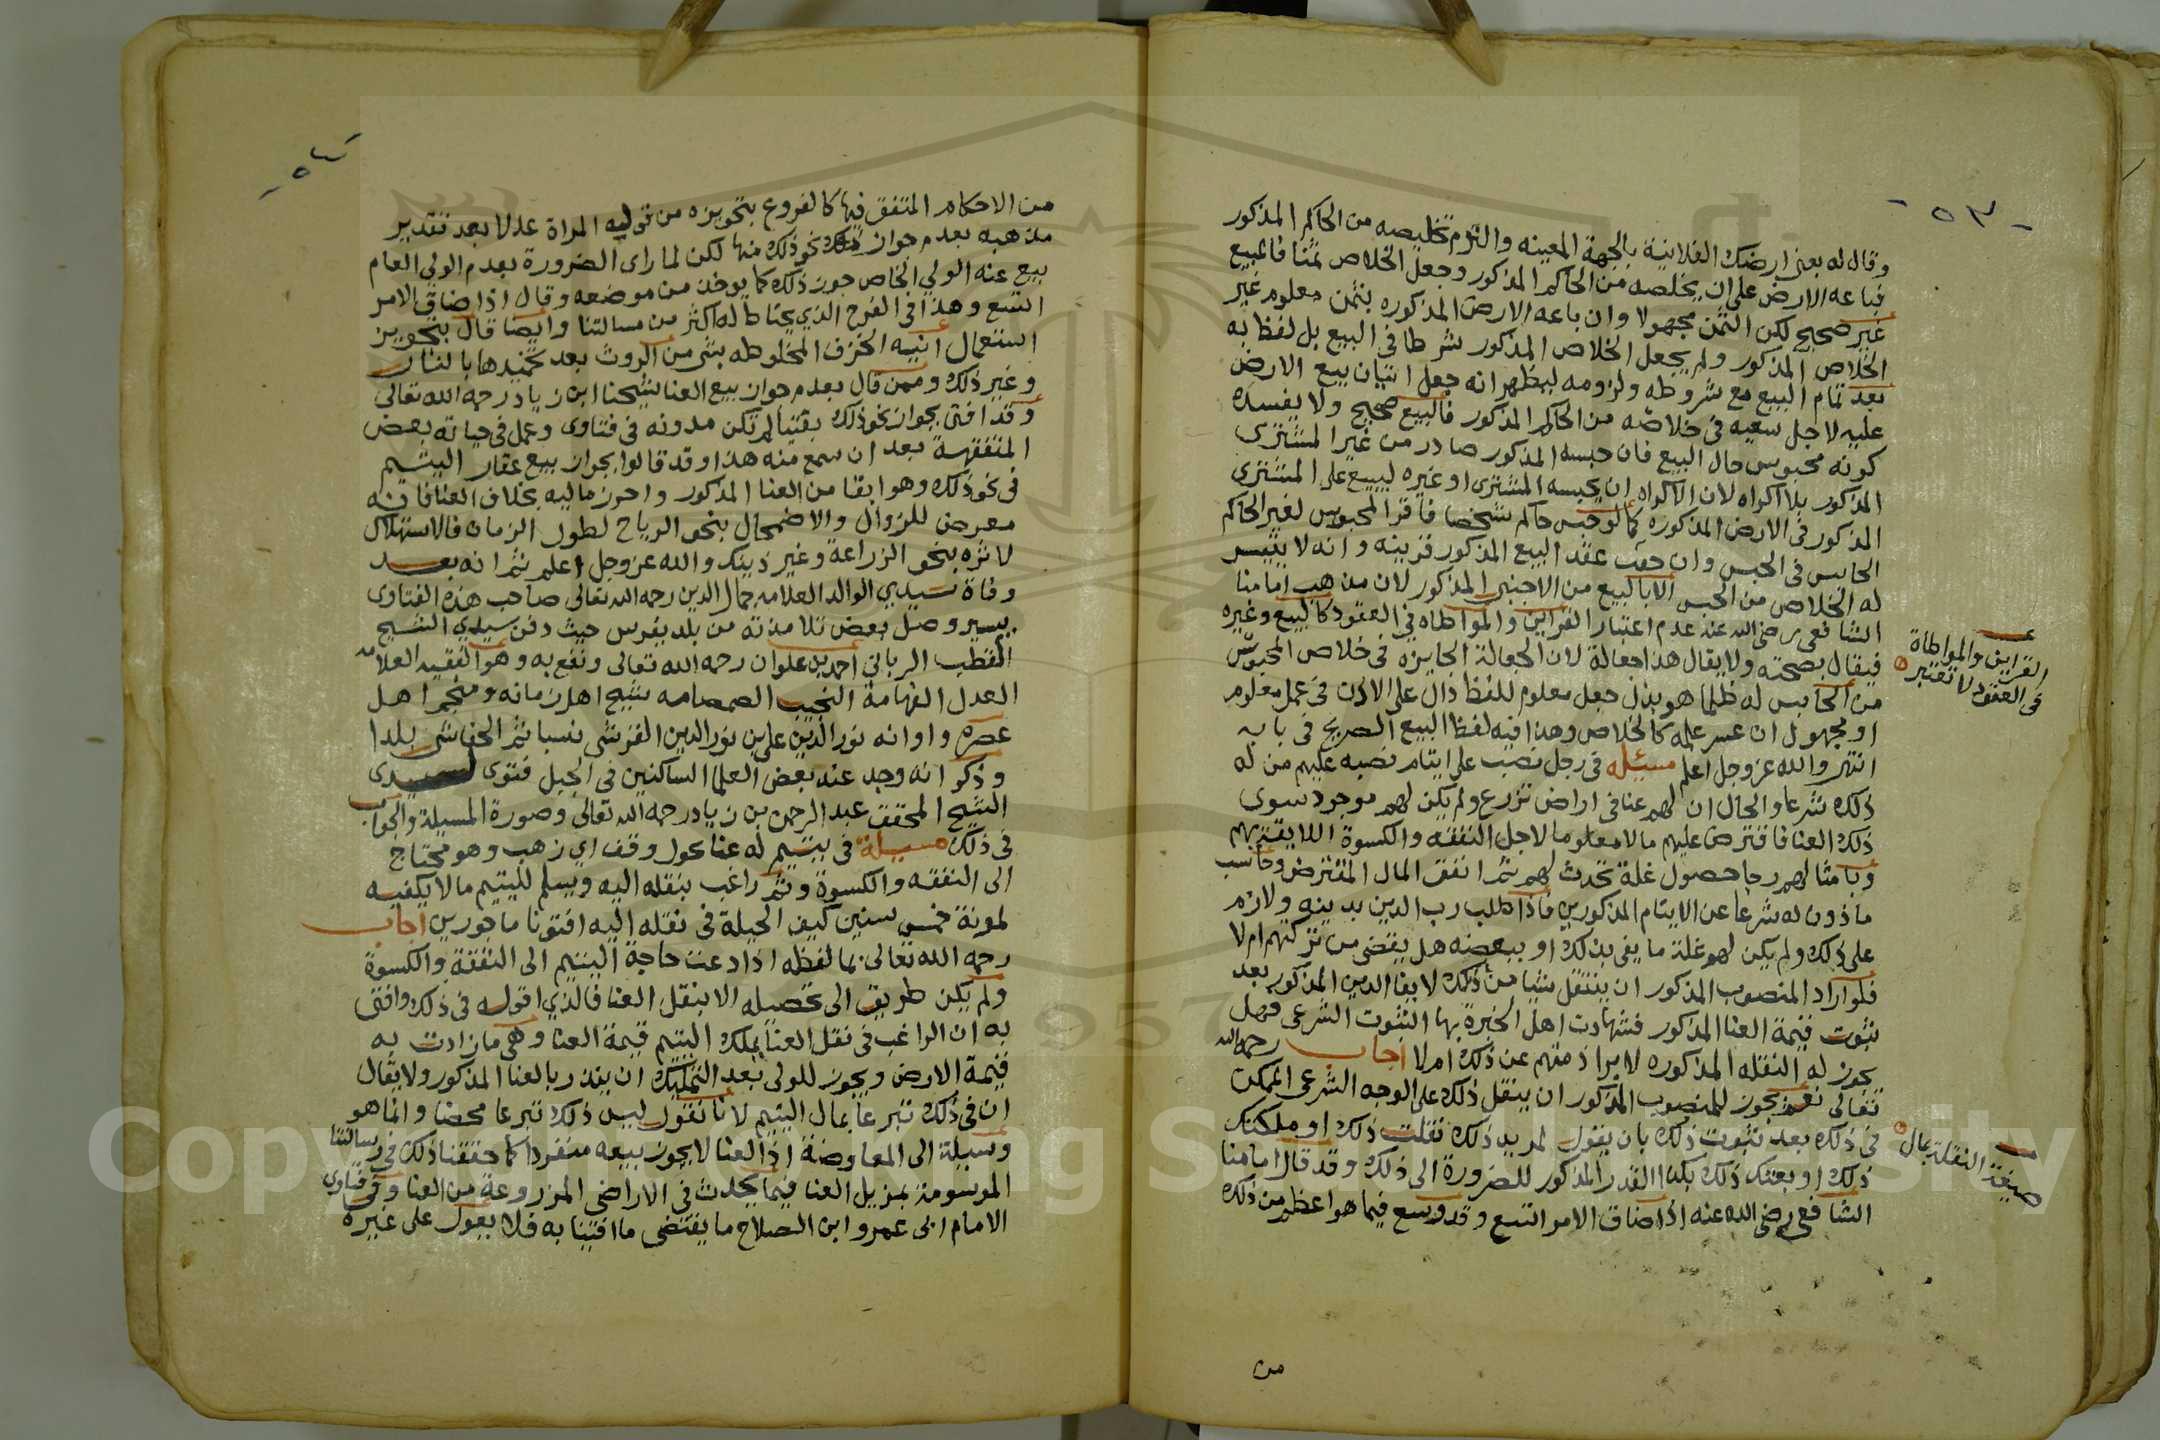 - ٥٣ -
وقال له بعني ارضك الفلانية بالجهة المعينه والتزم تخليصه من الحاكم المذكور
فباعه الارض على ان يخلصه من الحاكم المذكور وجعل الخلاص ثمنا فالبيع
غير صحيح لكن الثمن مجهولا وان باعه الارض المذكوره بثمن معلوم غير
الخلاص المذكور ولم يجعل الخلاص المذكور شرطا في البيع بل لفظ به
بعد تمام البيع مع شروطه ولزومه ليظهر انه جعل اتيان بيع الارض
عليه لاجل سعيه في خلاصه من الحاكم المذكور فالبيع صحيح ولا يفسده
كونه محبوس حال البيع فان حبسه المذكور صادر من غير المشتري
المذكور بلا اكراه لان الاكراه ان يحبسه المشتري او غيره ليبيع على المشتري
المذكور في الارض المذكوره كما لو حبس حاكم شخصا فاقر المحبوس لغير الحاكم
الحابس في الحبس وان عقد البيع المذكور قرينه وانه لا يتيسر
له الخلاص من الحبس الا بالبيع من الاجنبي المذكور لان مذهب امامنا
الشافعي رضي الله عنه عدم اعتبار القراين والمواطاه في العقود كالبيع وغيره
فيقال بصحته ولا يقال هذا جعالة لان الجعالة الجايزه في خلاص المحبوس
من الحابس له ظلما هو بذل جعل معلوم للفظ دال على الاذن في عمل معلوم
او مجهول ان عسر علمه كالخلاص وهذا فيه لفظ البيع الصريح في بابه
انتهى والله عز وجل اعلم مسئله في رجل نصب على ايتام نصبه عليهم من له
ذلك شرعا والحال ان لهم عنا في اراض تزرع ولم يكن لهم موجود سوى
ذلك العنا فاقترض عليهم مالا معلوما لاجل النفقه والكسوة اللايقتين بهم
وبامثالهم رجا حصول غلة تحدث لهم ثم انفق المال المقترض وحاسب
ماذون له شرعا عن الايتام المذكورين فاذا طلب رب الدين بدينه ولازم
على ذلك ولم يكن لهم غلة ما يفي بذلك او ببعضه هل يقضى من تركتهم ام لا
فلو اراد المنصوب المذكور ان ينتقل شيا من ذلك لايفا الدين المذكور بعد
ثبوت قيمة العنا المذكور فشهادت اهل الخبرة بها الثبوت الشرعي فهل
يجوز له النقله المذكوره لابراذمتهم عن ذلك ام لا اجاب رحمه الله
تعالى نعم يجوز للمنصوب المذكور ان ينقل ذلك على الوجه الشرعي الممكن
في ذلك بعد ثبوت ذلك بان يقول لمريد ذلك نقلت ذلك او ملكتك
ذلك او بعتك ذلك بكذا القدر المذكور للضرورة الى ذلك وقد قال امامنا
الشافعي رضي الله عنه اذا ضاق الامر اتسع وقد وسع فيما هو اعظم من ذلك
من
القراين والمواطاة
في العقود لا تعتبر
صيغة النقلة بمال
- ٥٤ -
من الاحكام المتفق فيها كالفروع بتجويزه من تولية المراة عدلا بعد تقدير
مذهبه بعدم جواز نحو ذلك منها لكن لما راى الضرورة بعدم الولي العام
بيع عنه الولي الخاص جوز ذلك كما يوخذ من موضعه وقال اذا ضاق الامر
اتسع وهذا في الفرج الذي يحتاط له اكثر من مسالتنا وايضا قال بتجويز
استعمال انيه الخزف المخلوطه بشي من الروث بعد تحميدها بالنار
وغير ذلك وممن قال بعدم جواز بيع العنا شيخنا ابن زياد رحمه الله تعالى
وقد افتى بجواز نحو ذلك بفتيا لم تكن مدونه في فتاوى وعمل في حياته بعض
المتفقهة بعد ان سمع منه هذا وقد قالوا بجواز بيع عقار اليتيم
في نحو ذلك وهو ابقا من العنا المذكور واحرز ماليه بخلاف العنا فانه
معرض للزوال والاضمحلال بنحو الرياح لطول الزمان فالاستهلاك
لاثره بنحو الزراعة وغير ذينك والله عز وجل اعلم ثم انه بعد
وفاة سيدي الوالد العلامه جمال الدين رحمه الله تعالى صاحب هذه الفتاوى
بيسير وصل بعض تلامذته من بلد يفرس حيث دفن سيدي الشيخ
القطب الرباني احمد بن علوان رحمه الله تعالى ونفع به وهو الفقيه العلامه
العدل الفهامة النجيب الصمصامه شيخ اهل زمانه ومنجم اهل
عصره واوانه نور الدين علي بن نور الدين القرشي نسبا ثم الخناشي بلدا
وذكر انه وجد عند بعض العلما الساكنين في الجبل فتوى لسيدي
الشيخ المحقق عبد الرحمن بن زياد رحمه الله تعالى وصورة المسيلة والجواب
في ذلك مسيلة في يتيم له عنا بحول وقف اي زهب وهو محتاج
الى النفقه والكسوة وثم راغب بنقله اليه ويسلم لليتيم مالا يكفيه
لمونة خمس سنين كيف الحيلة في نقله اليه افتونا ماجورين اجاب
رحمه الله تعالى بما لفظه اذا دعت حاجة اليتيم الى النفقة والكسوة
ولم يكن طريق الى تحصيله الا بنقل العنا فالذي اقوله في ذلك وافتى
به ان الراغب في نقل العنا يملك اليتيم قيمة العنا وهي ما زادت به
قيمة الارض ويجوز للولي بعد التمليك ان ينذر بالعنا المذكور ولا يقال
ان في ذلك تبرعا بمال اليتيم لانا نقول ليس ذلك تبرعا محضا وانما هو
وسيلة الى المعاوضة اذ العنا لا يجوز بيعه منفردا كما حققنا ذلك في رسالتنا
الموسومة بمزيل العنا فيما يحدث في الاراضي المزروعة من العنا وفي فتاوى
الامام ابي عمرو ابن الصلاح ما يقتضي ما افتينا به فلا يعول على غيره